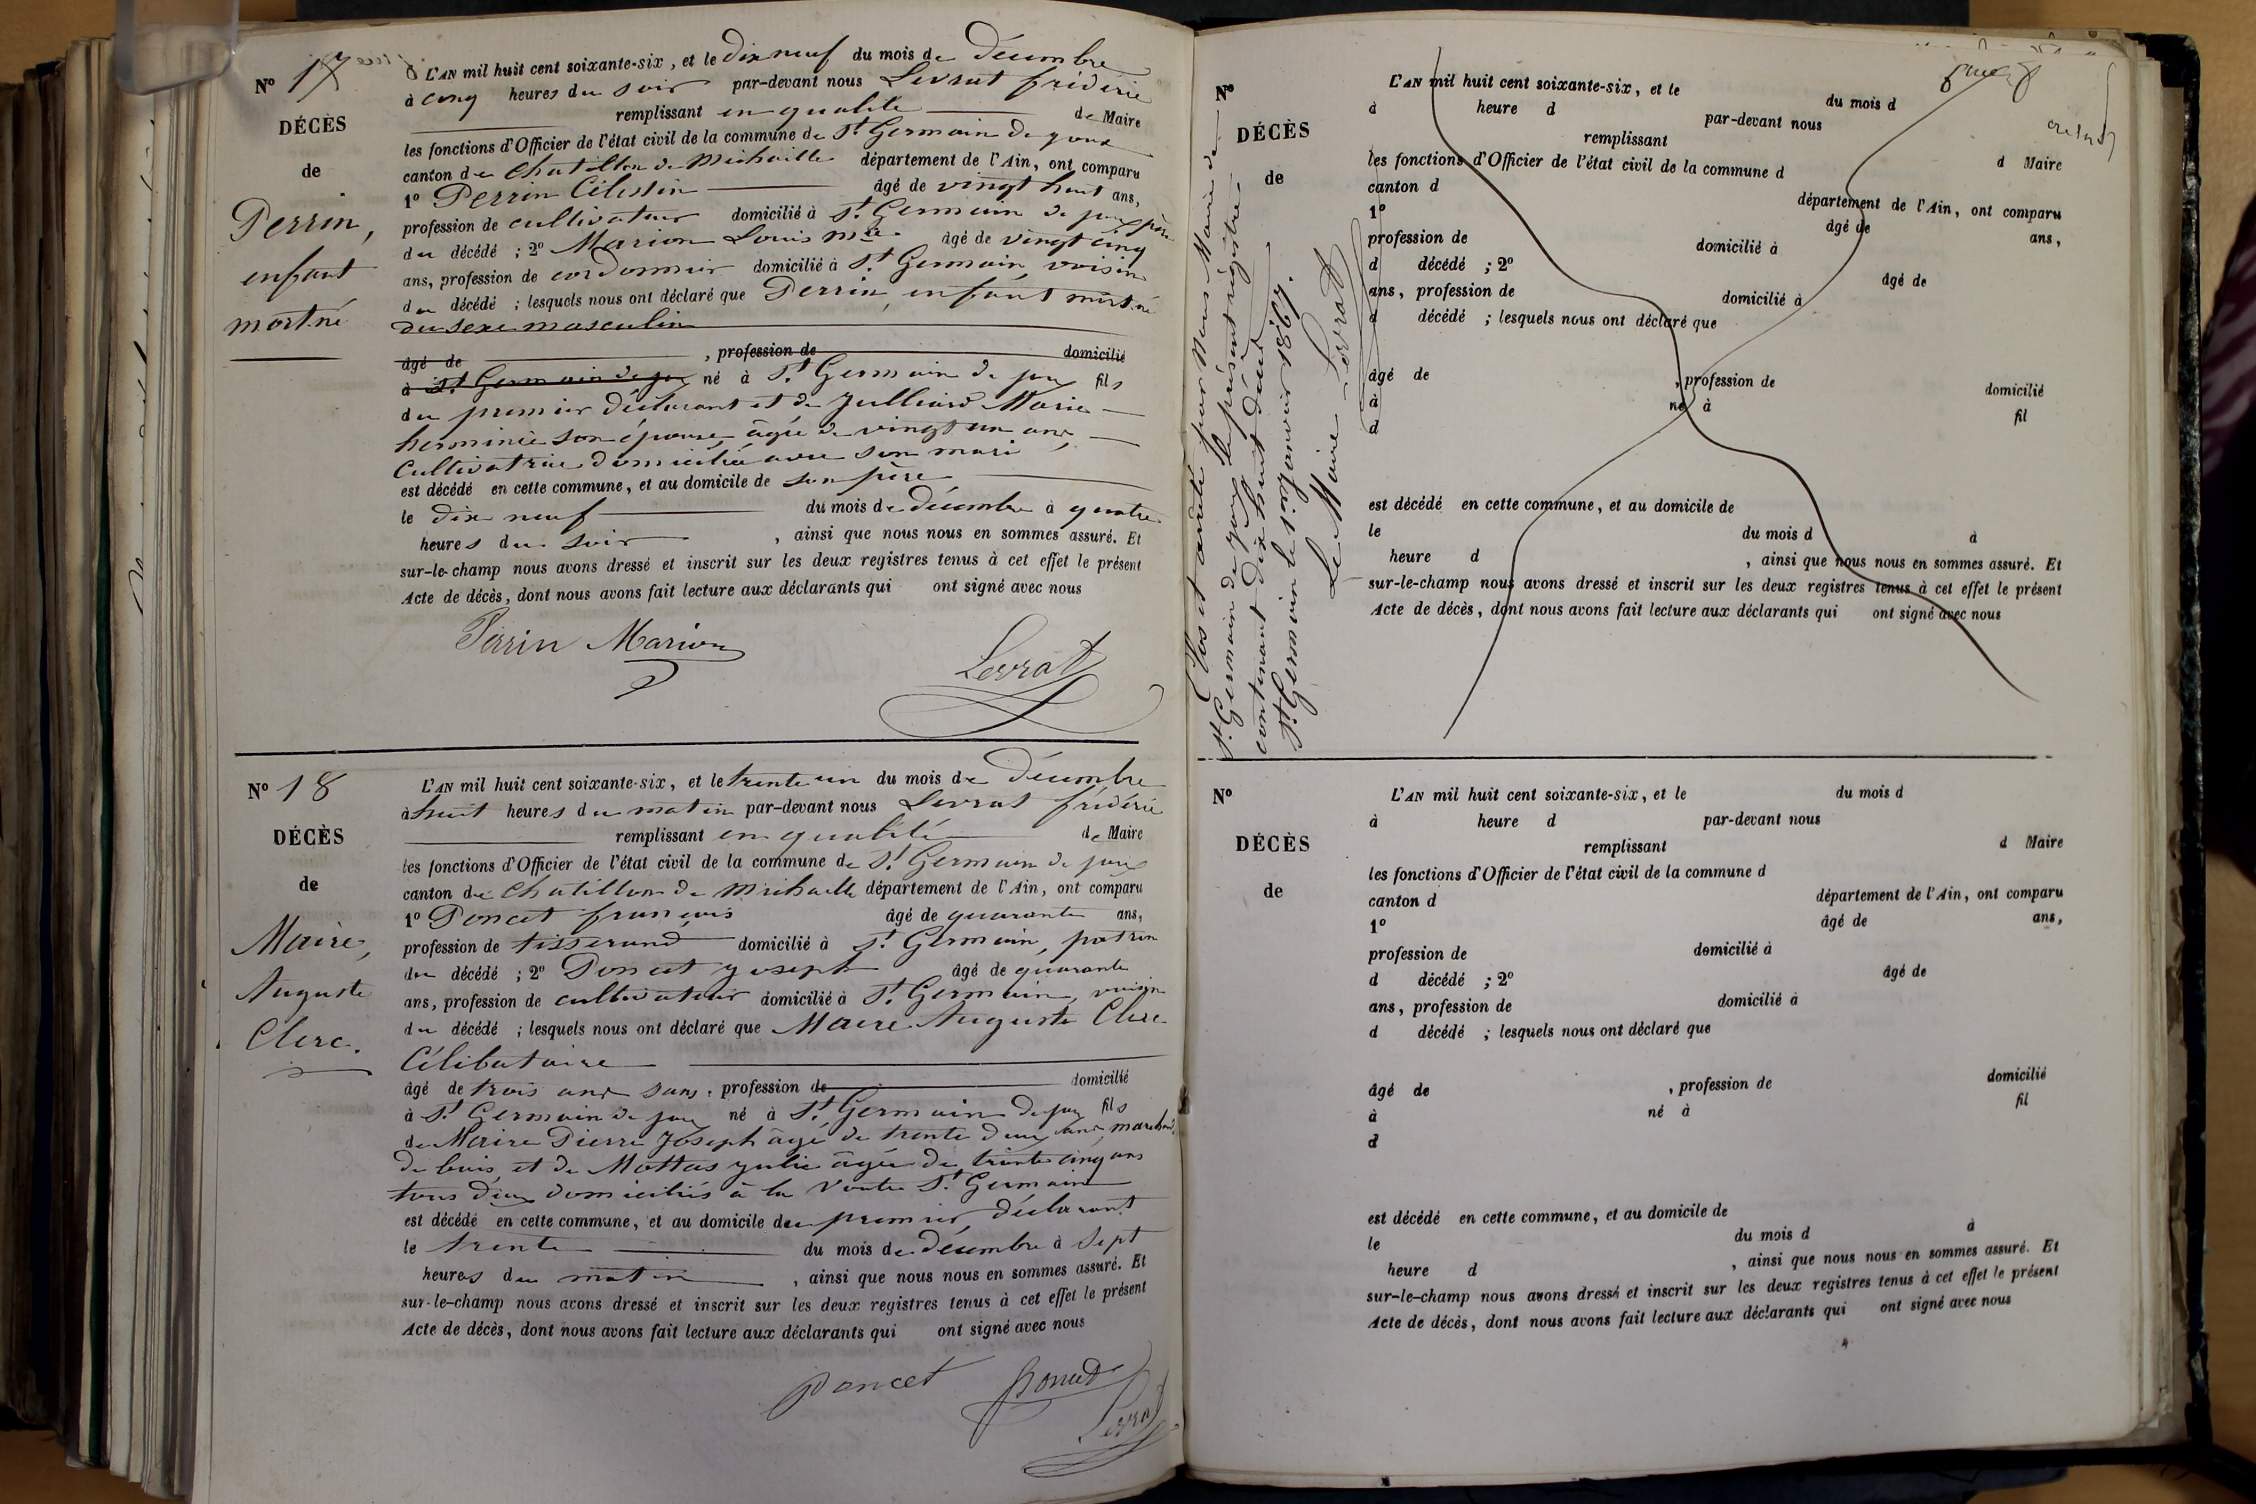 N° 17
DÉCÈS
de
Perrin,
enfant
mort-né
L'AN mil huit cent soixante-six, et le dix neuf du mois de Décembre
à cinq heures du soir par-devant nous Levrat frédéric
remplissant en qualité de Maire
les fonctions d'Officier de l'état civil de la commune de St Germain de joux
canton de Chatillon de Michaille département de l'Ain, ont comparu
1° Perrin Célestin âgé de vingt huit ans,
profession de cultivateur domicilié à St Germain de joux père
du décédé ; 2° Marion Louis Mie âgé de vingt cinq
ans, profession de cordonnier domicilié à St Germain, voisin
du décédé ; lesquels nous ont déclaré que Perrin, enfant mort-né
du sexe masculin
âgé de , profession de domicilié
à St Germain de joux né à St Germain de joux fils
du premier déclarant et de Julliard Marie
herminie son épouse âgée de vingt un ans,
Cultivatrice domiciliée avec son mari
est décédé en cette commune, et au domicile de son père
le dix neuf du mois de Décembre à quatre
heures du soir , ainsi que nous nous en sommes assuré. Et
sur-le-champ nous avons dressé et inscrit sur les deux registres tenus à cet effet le présent
Acte de décès, dont nous avons fait lecture aux déclarants qui ont signé avec nous
Perrin Marion
Levrat
N° 18
DÉCÈS
de
Maire,
Auguste
Clerc.
L'AN mil huit cent soixante-six, et le trente un du mois de Décembre
à huit heures du matin par-devant nous Levrat frédéric
remplissant en qualité de Maire
les fonctions d'Officier de l'état civil de la commune de St Germain de joux
canton de Chatillon de Michaille département de l'Ain, ont comparu
1° Poncet françois âgé de quarante ans,
profession de tisserand domicilié à St Germain, patron
du décédé ; 2° Poncet joseph âgé de quarante
ans, profession de cultivateur domicilié à St Germain, voisin
du décédé ; lesquels nous ont déclaré que Maire Auguste Clerc
Célibataire
âgé de trois ans sans, profession de domicilié
à St Germain de joux né à St Germain de joux fils
de Maire Pierre Joseph âgé de trente deux ans, marchand
de buis et de Mottas julie âgée de trente cinq ans
tous deux domiciliés à la Voute St Germain
est décédé en cette commune, et au domicile du premier déclarant
le trente du mois de Décembre à Sept
heures du matin , ainsi que nous nous en sommes assuré. Et
sur-le-champ nous avons dressé et inscrit sur les deux registres tenus à cet effet le présent
Acte de décès, dont nous avons fait lecture aux déclarants qui ont signé avec nous
Poncet Poncet
Levrat
N°
DÉCÈS
de
Clos et arrêté par Nous Maire de
St Germain de joux le présent régistre
contenant dix huit décès
St Germain le 1er janvier 1867.
Le Maire Levrat
L'AN mil huit cent soixante-six, et le du mois d
à heure d par-devant nous
remplissant d Maire
les fonctions d'Officier de l'état civil de la commune d
canton d département de l'Ain, ont comparu
1° âgé de ans,
profession de domicilié à
d décédé ; 2° âgé de
ans, profession de domicilié à
d décédé ; lesquels nous ont déclaré que
âgé de , profession de domicilié
à né à fil
d
est décédé en cette commune, et au domicile de
le du mois d à
heure d , ainsi que nous nous en sommes assuré. Et
sur-le-champ nous avons dressé et inscrit sur les deux registres tenus à cet effet le présent
Acte de décès, dont nous avons fait lecture aux déclarants qui ont signé avec nous
N°
DÉCÈS
de
L'AN mil huit cent soixante-six, et le du mois d
à heure d par-devant nous
remplissant d Maire
les fonctions d'Officier de l'état civil de la commune d
canton d département de l'Ain, ont comparu
1° âgé de ans,
profession de domicilié à
d décédé ; 2° âgé de
ans, profession de domicilié à
d décédé ; lesquels nous ont déclaré que
âgé de , profession de domicilié
à né à fil
d
est décédé en cette commune, et au domicile de
le du mois d à
heure d , ainsi que nous nous en sommes assuré. Et
sur-le-champ nous avons dressé et inscrit sur les deux registres tenus à cet effet le présent
Acte de décès, dont nous avons fait lecture aux déclarants qui ont signé avec nous